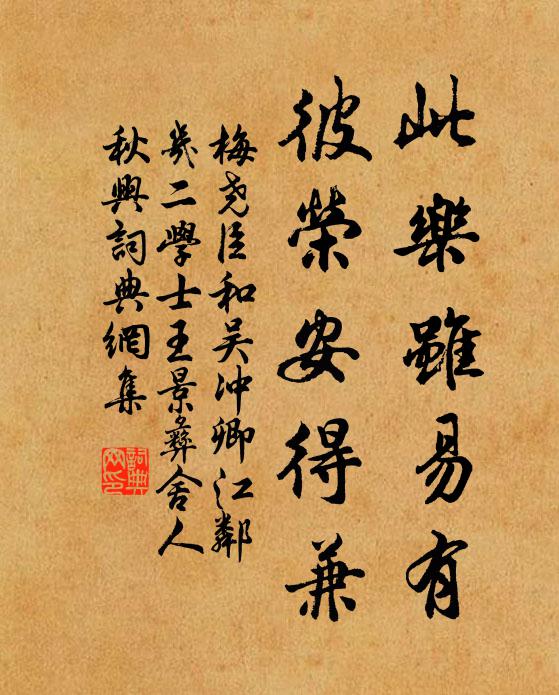 此樂雖易有
彼榮安得兼
梅堯臣和吴冲卿江鄰
幾二學士王景彝舍人
秋興詞典網集
詞典
網印